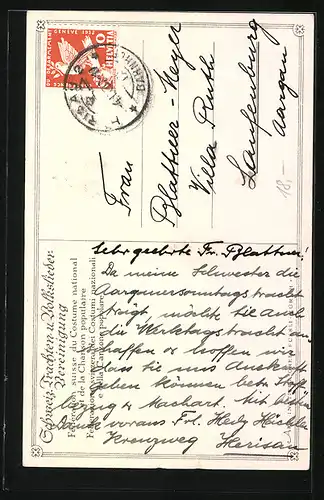 Schweiz. Trachten u. Volkslieder-
Vereinigung
Fédération suisse du Costume national
et de la Chanson populaire
Federazione svizzera dei Costumi nazionali
e della Canzone popolare
GENÈVE 1932
HELVETIA
10
Frau
Blattner-Meyer
Villa Ruth
Laufenburg
Aargau
18,-
Sehr geehrte Fr. Blattner!
Da meine Schwester die
Aargauersonntagstracht
trägt, möchte sie auch
die Werktagstracht an-
schaffen & hoffen wir
dass sie uns Auskunft
geben können betr. Stoff-
bezug & Machart. Mit bestem
Dank voraus Frl. Hedy
Kreuzweg Herisau